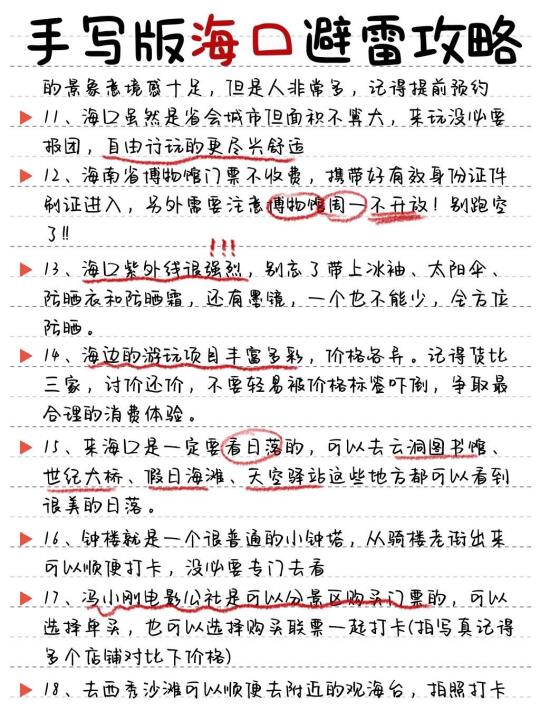 手写版海口避雷攻略
的景象意境感十足，但是人非常多，记得提前预约
11、海口虽然是省会城市但面积不算大，来玩没必要
报团，自由行玩的更尽兴舒适
12、海南省博物馆门票不收费，携带好有效身份证件
刷证进入，另外需要注意博物馆周一不开放！别跑空
了!!
!!!
13、海口紫外线很强烈，别忘了带上冰袖、太阳伞、
防晒衣和防晒霜，还有墨镜，一个也不能少，全方位
防晒。
14、海边的游玩项目丰富多彩，价格各异。记得货比
三家，讨价还价，不要轻易被价格标签吓倒，争取最
合理的消费体验。
15、来海口是一定要看日落的，可以去云洞图书馆、
世纪大桥、假日海滩、天空驿站这些地方都可以看到
很美的日落。
16、钟楼就是一个很普通的小钟塔，从骑楼老街出来
可以顺便打卡，没必要专门去看
17、冯小刚电影公社是可以分景区购买门票的，可以
选择单买，也可以选择购买联票一起打卡(拍写真记得
多个店铺对比下价格)
18、去西秀沙滩可以顺便去附近的观海台，拍照打卡